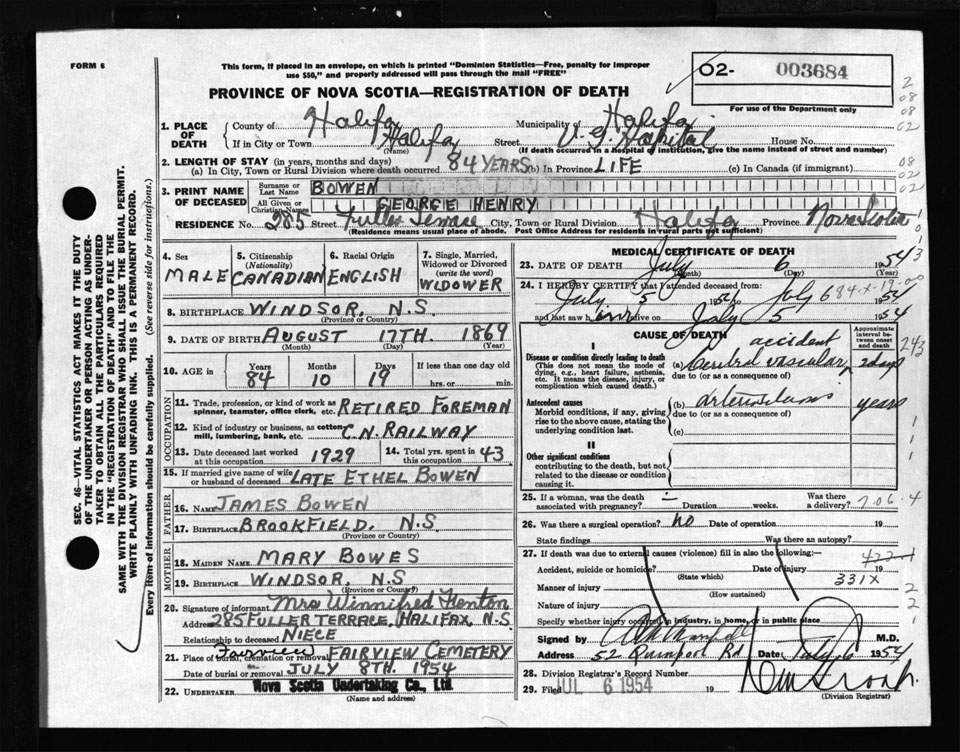 FORM 6
This form, if placed in an envelope, on which is printed "Dominion Statistics—Free, penalty for improper
use $50," and properly addressed will pass through the mail "FREE"
O2- 003684
For use of the Department only
PROVINCE OF NOVA SCOTIA—REGISTRATION OF DEATH
2
08
08
02
1. PLACE OF DEATH
County of Halifax Municipality of Halifax
If in City or Town Halifax Street V. G. Hospital House No.
(Name) (If death occurred in a hospital or institution, give the name instead of street and number)
2. LENGTH OF STAY (in years, months and days)
(a) In City, Town or Rural Division where death occurred 84 YEARS (b) In Province LIFE (c) In Canada (if immigrant)
08
02
02
3. PRINT NAME OF DECEASED
Surname or Last Name BOWEN
All Given or Christian Names GEORGE HENRY
RESIDENCE No. 285 Street Fuller Terrace City, Town or Rural Division Halifax Province Nova Scotia
(Residence means usual place of abode. Post Office Address for residents in rural parts not sufficient)
4. Sex
MALE
5. Citizenship (Nationality)
CANADIAN
6. Racial Origin
ENGLISH
7. Single, Married, Widowed or Divorced (write the word)
WIDOWER
8. BIRTHPLACE WINDSOR, N.S.
(Province or Country)
9. DATE OF BIRTH AUGUST 17TH. 1869
(Month) (Day) (Year)
10. AGE in Years Months Days If less than one day old
84 10 19 hrs. or min.
OCCUPATION
11. Trade, profession, or kind of work as
spinner, teamster, office clerk, etc. RETIRED FOREMAN
12. Kind of industry or business, as cotton
mill, lumbering, bank, etc. C.N. RAILWAY
13. Date deceased last worked
at this occupation 1929
14. Total yrs. spent in
this occupation 43
15. If married give name of wife
or husband of deceased LATE ETHEL BOWEN
FATHER
16. Name JAMES BOWEN
17. Birthplace BROOKFIELD, N.S.
(Province or Country)
MOTHER
18. Maiden Name MARY BOWES
19. Birthplace WINDSOR, N.S
(Province or Country)
20. Signature of informant Mrs Winnifred Fenton
Address 285 FULLER TERRACE, HALIFAX, N.S.
Relationship to deceased NIECE
21. Place of burial, cremation or removal Fairview FAIRVIEW CEMETERY
Date of burial or removal JULY 8TH. 1954
22. UNDERTAKER Nova Scotia Undertaking Co., Ltd.
(Name and address)
MEDICAL CERTIFICATE OF DEATH
23. DATE OF DEATH July 6 1954
(Month) (Day) (Year)
24. I HEREBY CERTIFY that I attended deceased from:
July 5 1954 to July 6 1954
84-x-19
and last saw him alive on July 5 1954
CAUSE OF DEATH
Approximate interval between onset and death
I
Disease or condition directly leading to death
(This does not mean the mode of
dying, e.g., heart failure, asthenia,
etc. It means the disease, injury, or
complication which caused death.)
(a) Cerebral vascular accident 2 days
due to (or as a consequence of)
Antecedent causes
Morbid conditions, if any, giving
rise to the above cause, stating the
underlying condition last.
(b) years
due to (or as a consequence of)
(c)
II
Other significant conditions
contributing to the death, but not
related to the disease or condition
causing it.
25. If a woman, was the death
associated with pregnancy? Duration weeks. Was there a delivery?
706-4
26. Was there a surgical operation? no Date of operation 19
State findings Was there an autopsy?
27. If death was due to external causes (violence) fill in also the following:—
Accident, suicide or homicide? Date of injury 19
(State which)
331X
Manner of injury
(How sustained)
Nature of injury
Specify whether injury occurred in industry, in home, or in public place
Signed by M.D.
Address 52 Quinpool Rd Date July 6 1954
28. Division Registrar's Record Number
29. Filed JUL 6 1954 19
(Division Registrar)
SEC. 46—VITAL STATISTICS ACT MAKES IT THE DUTY
OF THE UNDERTAKER OR PERSON ACTING AS UNDER-
TAKER TO OBTAIN ALL THE PARTICULARS REQUIRED
IN THE "REGISTRATION OF DEATH" AND TO FILE THE
SAME WITH THE DIVISION REGISTRAR WHO SHALL ISSUE THE BURIAL PERMIT.
WRITE PLAINLY WITH UNFADING INK. THIS IS A PERMANENT RECORD.
Every item of information should be carefully supplied. (See reverse side for instructions.)